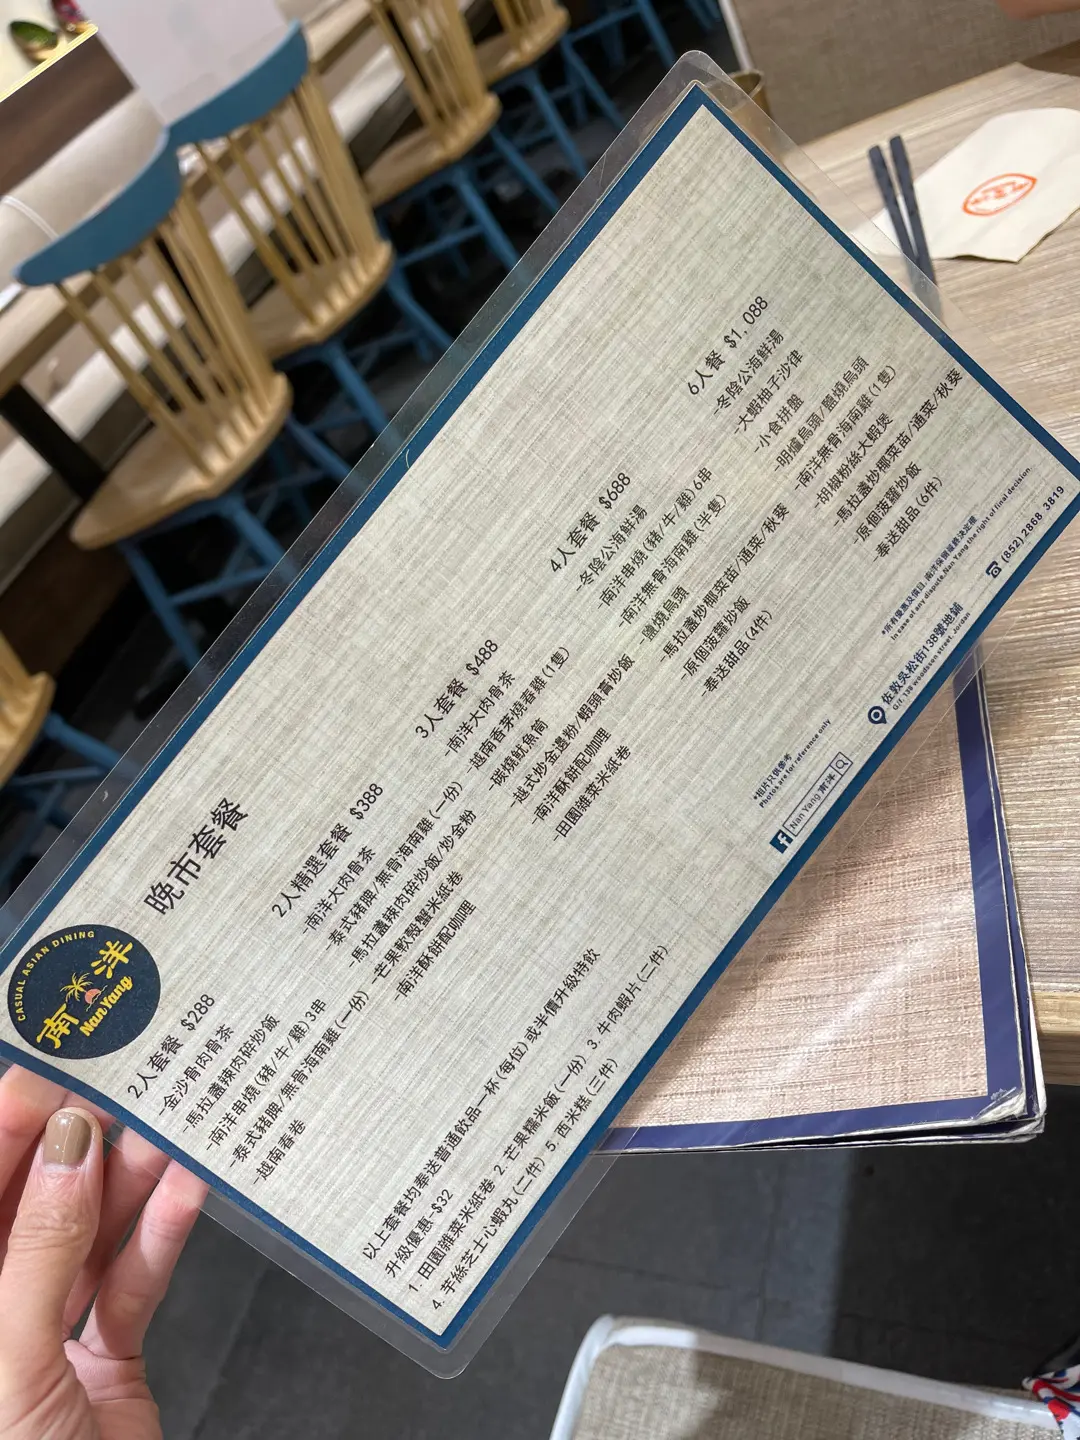 CASUAL ASIAN DINING
南洋
NanYang
晚市套餐
2人套餐 $288
-金沙骨肉骨茶
-馬拉盞辣肉碎炒飯
-南洋串燒(豬/牛/雞)3串
-泰式豬脾/無骨海南雞(一份)
-越南春卷
2人精選套餐 $388
-南洋大肉骨茶
-泰式豬脾/無骨海南雞(一份)
-馬拉盞辣肉碎炒飯/炒金粉
-芒果軟殼蟹米紙卷
-南洋酥餅配咖喱
3人套餐 $488
-南洋大肉骨茶
-越南香茅燒春雞(1隻)
-碳燒魷魚筒
-越式炒金邊粉/蝦頭膏炒飯
-南洋酥餅配咖喱
-田園雜菜米紙卷
4人套餐 $688
-冬陰公海鮮湯
-南洋串燒(豬/牛/雞)6串
-南洋無骨海南雞(半隻)
-鹽燒烏頭
-馬拉盞炒椰菜苗/通菜/秋葵
-原個菠蘿炒飯
-奉送甜品(4件)
6人餐 $1,088
-冬陰公海鮮湯
-大蝦柚子沙律
-小食拼盤
-明爐烏頭/鹽燒烏頭
-南洋無骨海南雞(1隻)
-胡椒粉絲大蝦煲
-馬拉盞炒椰菜苗/通菜/秋葵
-原個菠蘿炒飯
-奉送甜品(6件)
以上套餐均奉送普通飲品一杯(每位)或半價升級特飲
升級優惠-$32
1. 田園雜菜米紙卷 2. 芒果糯米飯(一份) 3. 牛肉蝦片(二件)
4. 芋絲芝士心蝦丸(二件) 5. 西米糕(三件)
*相片只供參考
Photos are for reference only
Nan Yang 南洋
*所有優惠及價目, 南洋保留最終決定權
In case of any dispute,Nan Yang the right of final decision.
佐敦吳松街138號地鋪
G/f, 138 woodsson street, Jordan
(852) 2868 3819